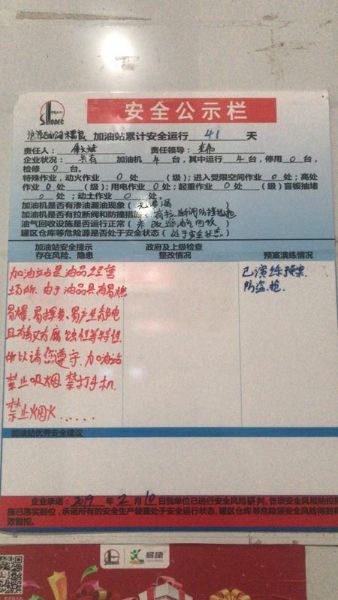 安全公示栏
加油站累计安全运行 41 天
责任人： 责任领导：
企业状况：共有 加油机 4 台，其中运行 4 台，停用 0 台，
检修 0 台。
特殊作业，动火作业 0 处（ 级）；进入受限空间作业 0 处；高处
作业 0 处（ 级）；用电作业 0 处；起重作业 0 处（ 级）盲板抽堵
0 处；动土作业 0 处。
加油机是否有渗油漏油现象（无渗漏
加油机是否有拉断阀和防撞措施
油气回收设施是否运行正常
罐区仓库等危险源是否处于安全状态（处于安全状态）
加油站安全提示
存在风险、隐患
政府及上级检查
整改情况
预案演练情况
加油站是油品经营
场所，由于油品具有易燃
易爆、易挥发、易产生静电
且有毒又有腐蚀性等特性
所以请您遵守，加油站
禁止吸烟 禁打手机
禁止烟火......
已演练预案
防盗抢
加油站优秀安全建议
企业承诺：2019 年 2 月 10 日我单位已进行安全风险研判，各项安全风险防控措
施已落实到位，承诺所有的安全生产装置处于安全运行状态，罐区仓库等危险源安全风险得到有
效管控。
易捷